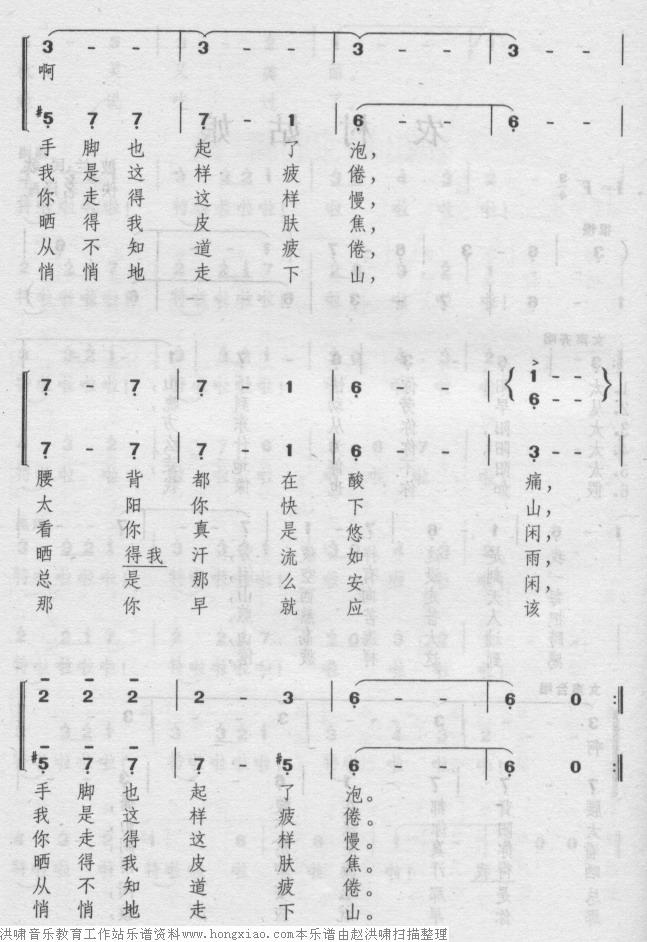 3 - - | 3 - - | 3 - - | 3 - - |
啊
#5 7 7 | 7 - 1 | 6 - - | 6 - - |
手脚也起了泡，
我是这样疲倦，
你走得这样慢，
晒得我皮肤焦，
从不知道疲倦，
悄悄地走下山，
7 - 7 | 7 - 1 | 6 - - | { 1 - - }
{ 6 - - }
7 - 7 | 7 - 1 | 6 - - | 3 - -
腰背都在酸痛，
太阳你快下山，
看你真是悠闲，
晒得我汗流如雨，
总是那么安闲，
那你早就应该
2 2 2 | 2 - 3 | 6 - - | 6 0 :||
#5 7 7 | 7 - #5 | 6 - - | 6 0 :||
手脚也起了泡。
我是这样疲倦。
你走得这样慢。
晒得我皮肤焦。
从不知道疲倦。
悄悄地走下山。
洪啸音乐教育工作站乐谱资料www.hongxiao.com本乐谱由赵洪啸扫描整理